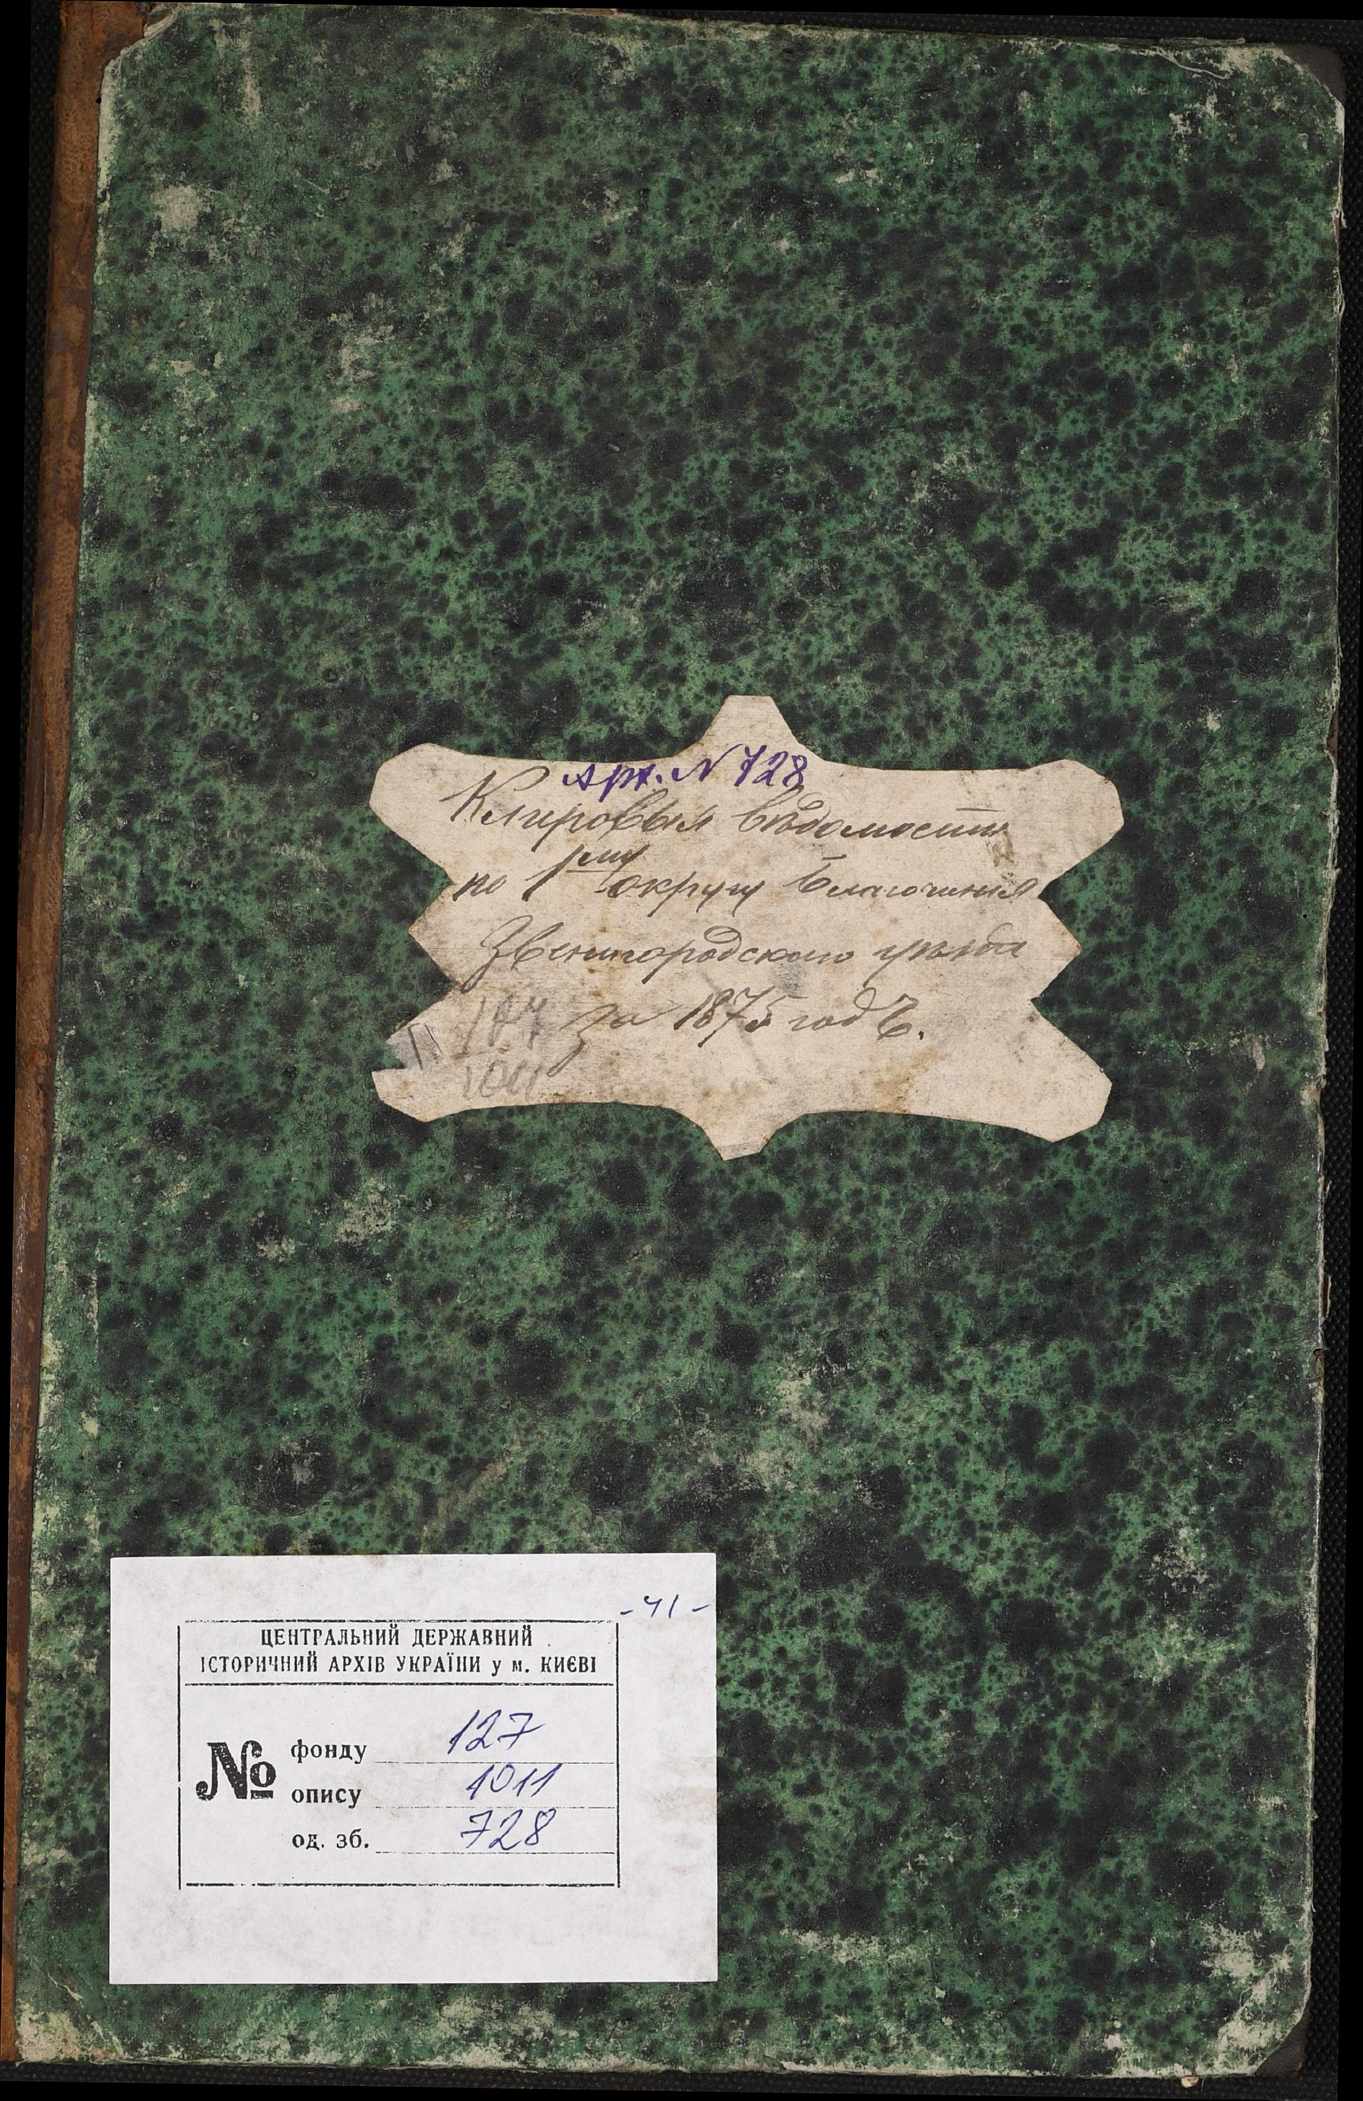 Арх. N 728
Клировыя вѣдомости
по 1му округу Благочинія
Звенигородскаго уѣзда
за 1875 годъ.
127
1011
- 41 -
ЦЕНТРАЛЬНИЙ ДЕРЖАВНИЙ
ІСТОРИЧНИЙ АРХІВ УКРАЇНИ у м. КИЄВІ
№
фонду 127
опису 1011
од. зб. 728